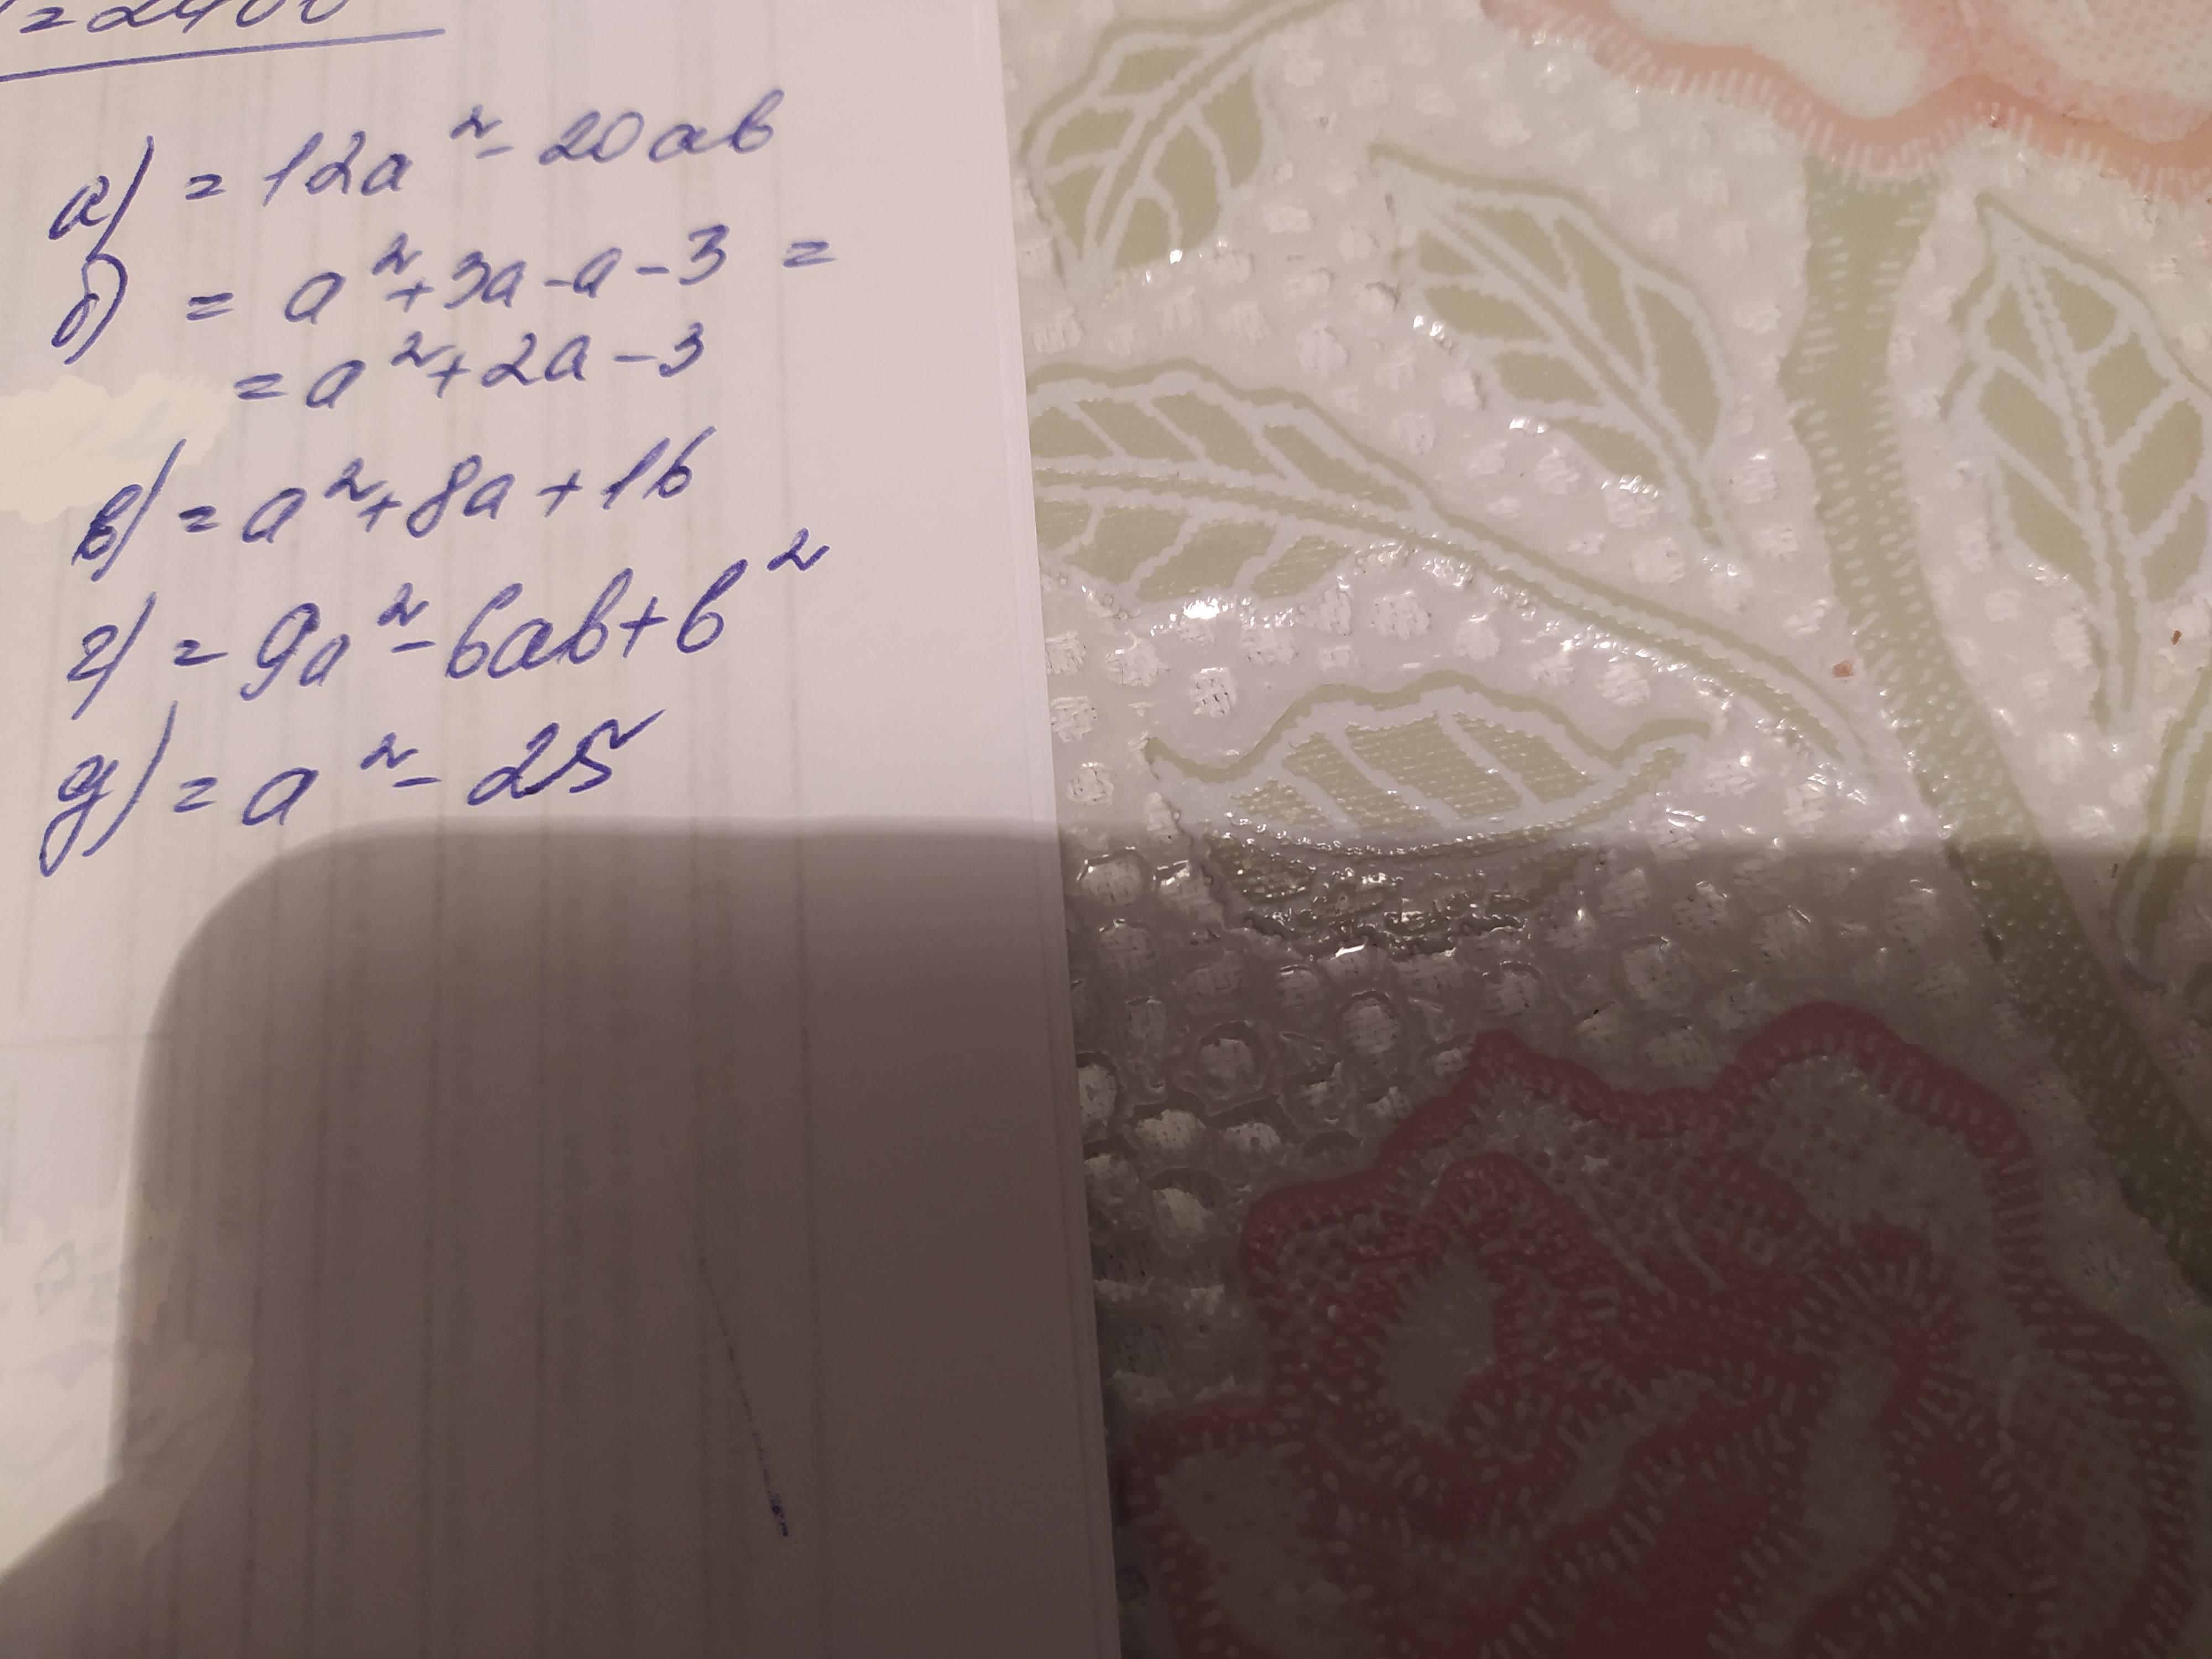 = 2400
а) = 12a² - 20ab
б) = a² + 3a - a - 3 =
= a² + 2a - 3
в) = a² + 8a + 16
г) = 9a² - 6ab + b²
д) = a² - 25